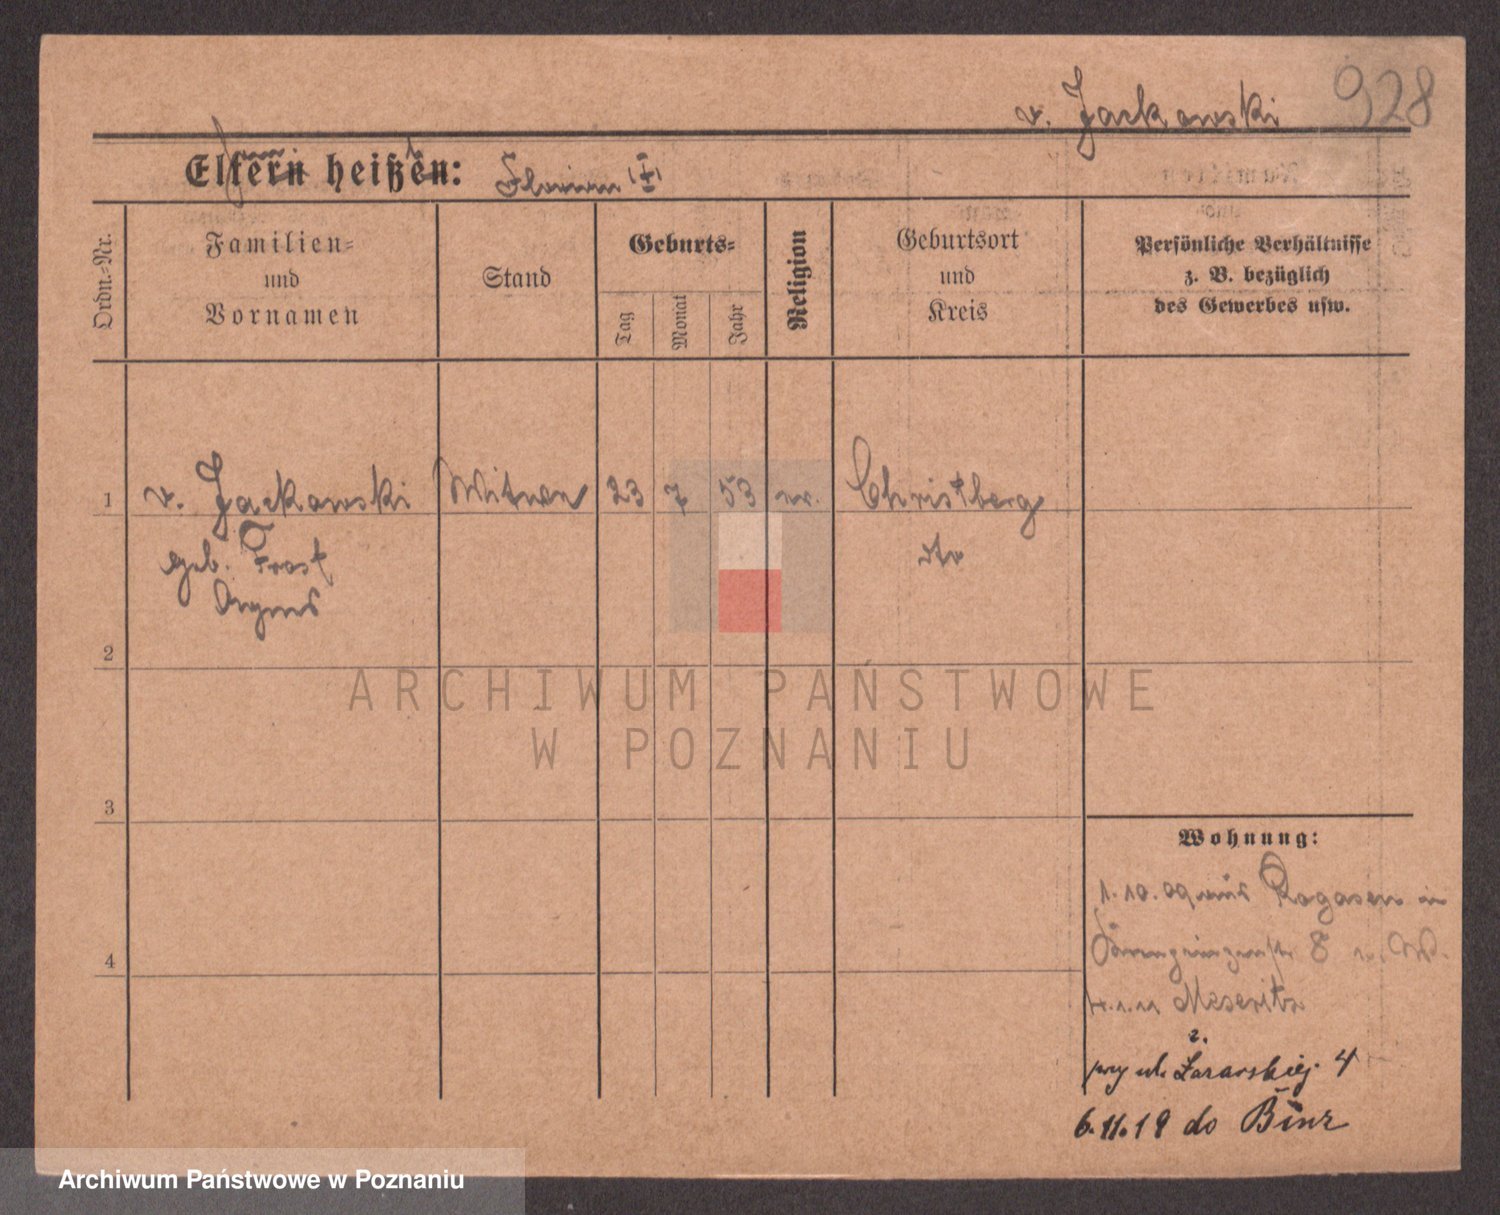 v. Jackowski 928
Eltern heißen: Florian (I)
Ordn.-Nr.
Familien-
und
Vornamen
Stand
Geburts-
Tag
Monat
Jahr
Religion
Geburtsort
und
Kreis
Persönliche Verhältnisse
z. B. bezüglich
des Gewerbes usw.
1 v. Jackowski Witwe 23 7 53 Christberg
geb. Frost
Agnes
dto
2
3
4
Wohnung:
1.10.09 aus Rogasen in
8
Meseritz
przy ul. Łazarskiej 4
6.11.19 do Binz
ARCHIWUM PAŃSTWOWE
W POZNANIU
Archiwum Państwowe w Poznaniu